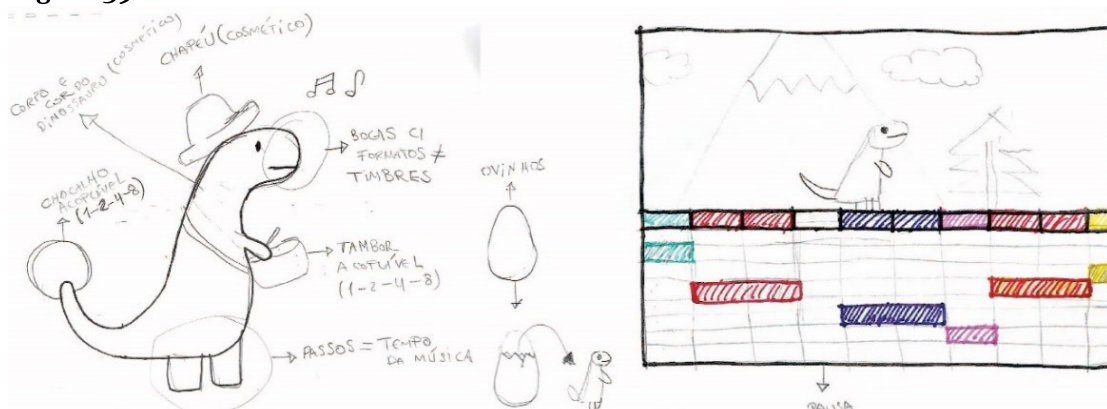 CHAPÉU (COSMÉTICO)
CORPO E
COR DO
DINOSSAURO (COSMÉTICO)
CHOCALHO
ACOPLÁVEL
(1-2-4-8)
BOCAS C/
FORMATOS ≠
TIMBRES
TAMBOR
ACOPLÁVEL
(1-2-4-8)
PASSOS = TEMPO
DA MÚSICA
OVINHOS
PAUSA